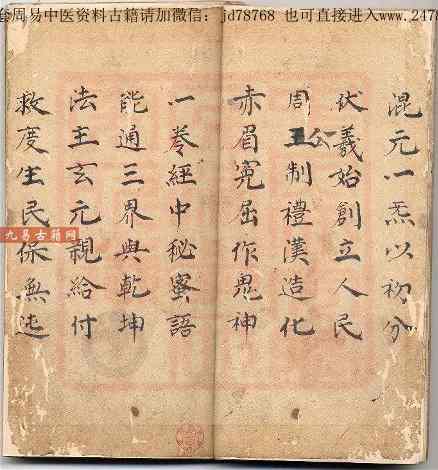 套周易中医资料古籍请加微信:jd78768 也可直接进入www.247
混元一炁以初分
伏羲始創立人民
周公王制禮漢造化
赤眉冤屈作鬼神
一卷經中秘蜜語
能通三界與乾坤
法主玄元親給付
救度生民保無迍
九易古籍网